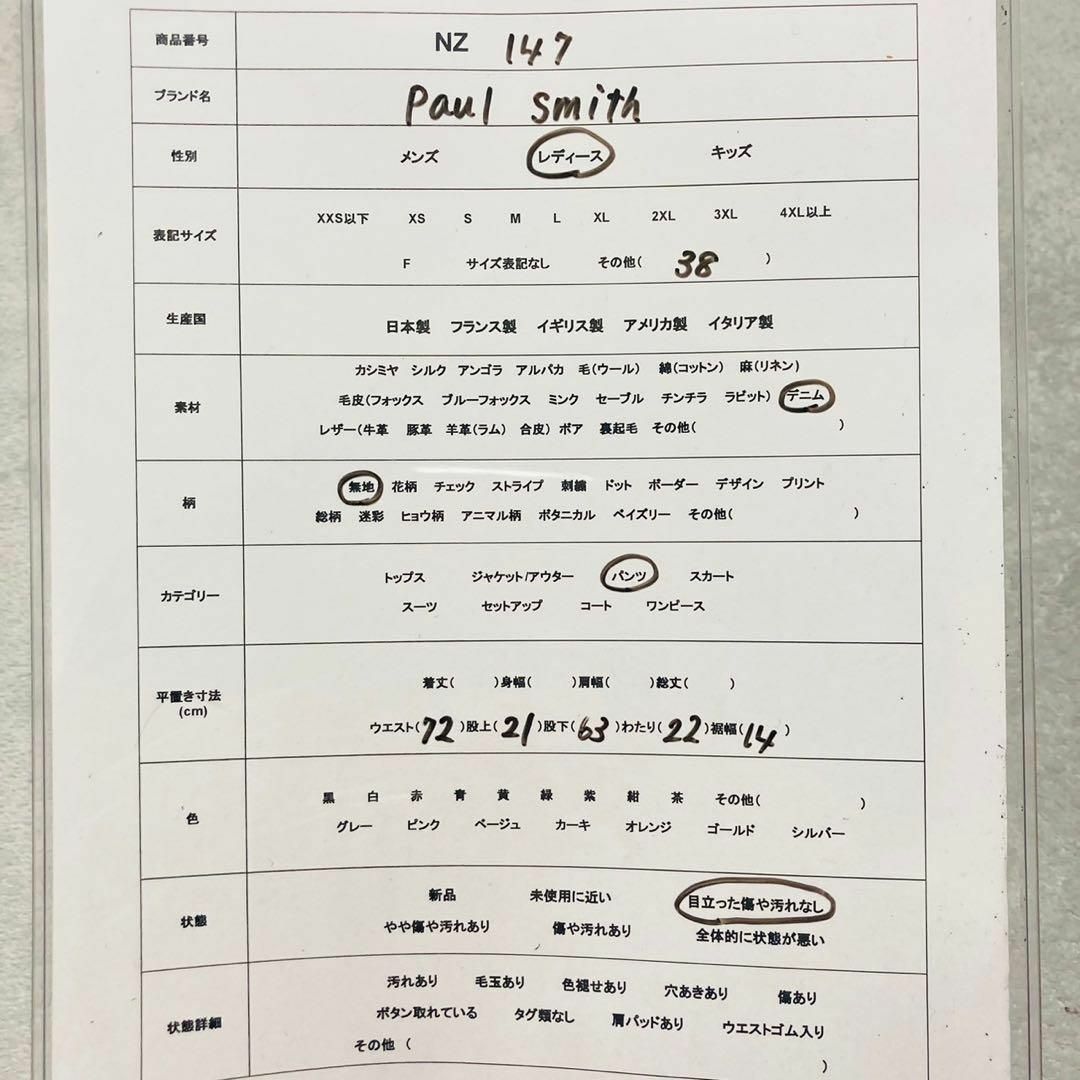 商品番号 NZ 147
ブランド名 Paul Smith
性別 メンズ レディース キッズ
表記サイズ
XXS以下 XS S M L XL 2XL 3XL 4XL以上
F サイズ表記なし その他( 38 )
生産国 日本製 フランス製 イギリス製 アメリカ製 イタリア製
素材
カシミヤ シルク アンゴラ アルパカ 毛(ウール) 綿(コットン) 麻(リネン)
毛皮(フォックス ブルーフォックス ミンク セーブル チンチラ ラビット) デニム
レザー(牛革 豚革 羊革(ラム) 合皮) ボア 裏起毛 その他( )
柄
無地 花柄 チェック ストライプ 刺繍 ドット ボーダー デザイン プリント
総柄 迷彩 ヒョウ柄 アニマル柄 ボタニカル ペイズリー その他( )
カテゴリー
トップス ジャケット/アウター パンツ スカート
スーツ セットアップ コート ワンピース
平置き寸法
(cm)
着丈( )身幅( )肩幅( )総丈( )
ウエスト( 72 )股上( 21 )股下( 63 )わたり( 22 )裾幅( 14 )
色
黒 白 赤 青 黄 緑 紫 紺 茶 その他( )
グレー ピンク ベージュ カーキ オレンジ ゴールド シルバー
状態
新品 未使用に近い 目立った傷や汚れなし
やや傷や汚れあり 傷や汚れあり 全体的に状態が悪い
状態詳細
汚れあり 毛玉あり 色褪せあり 穴あきあり 傷あり
ボタン取れている タグ類なし 肩パッドあり ウエストゴム入り
その他 ( )